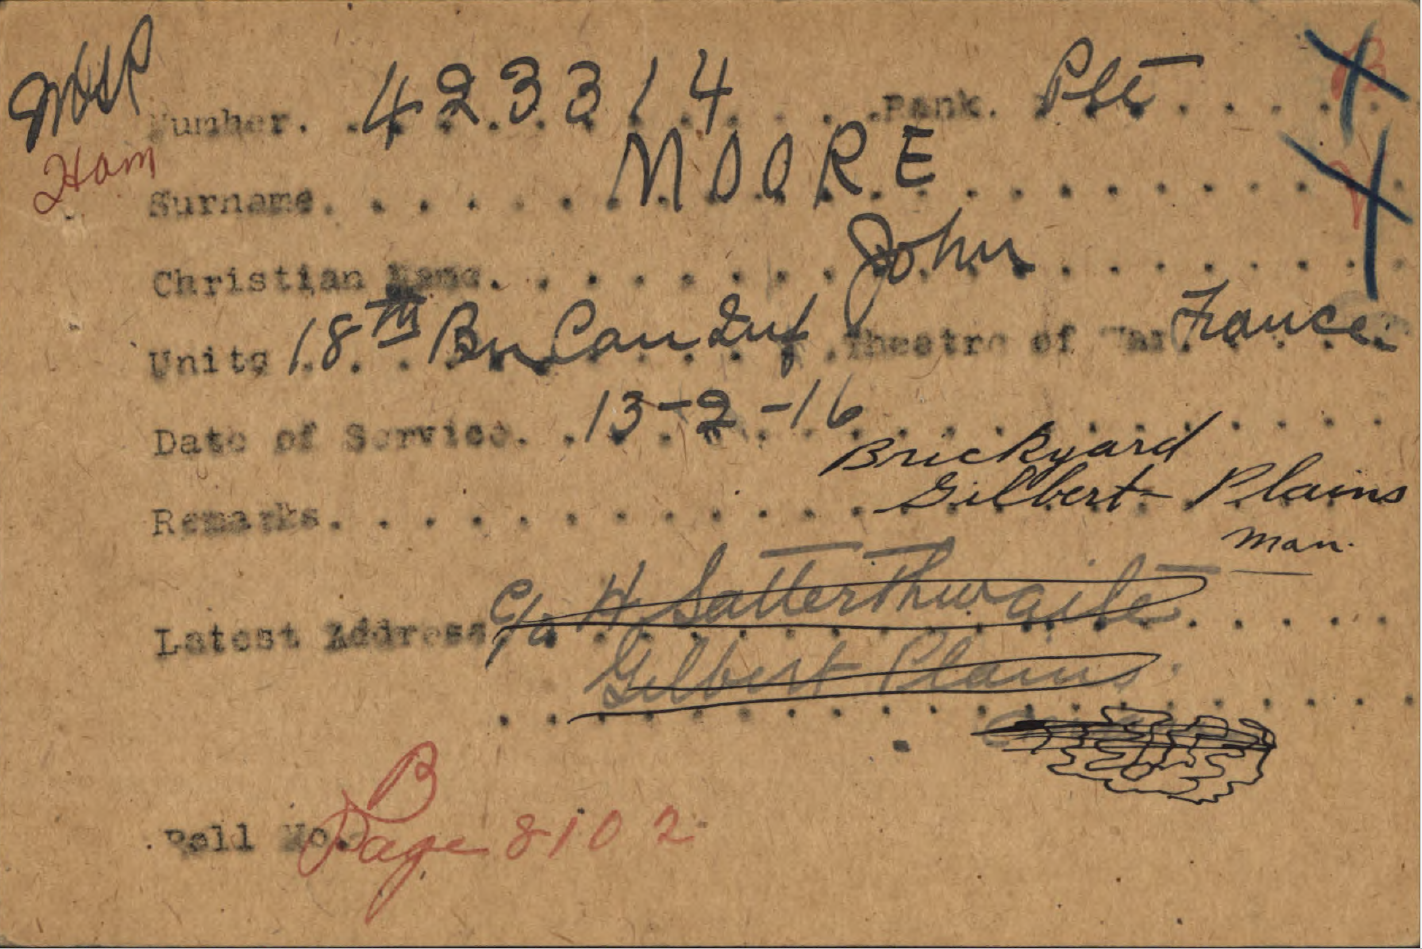 Number. 423314 Rank. Pte B
Ham
Surname. MOORE V
Christian Name. John
Units 18TH Bn Can Inf Theatre of War France.
Date of Service. 13-2-16
Brickyard
Remarks. Gilbert Plains
Man.
Latest Address C/o H Satterthwaite
Gilbert Plains
B
Roll No. Page 8102